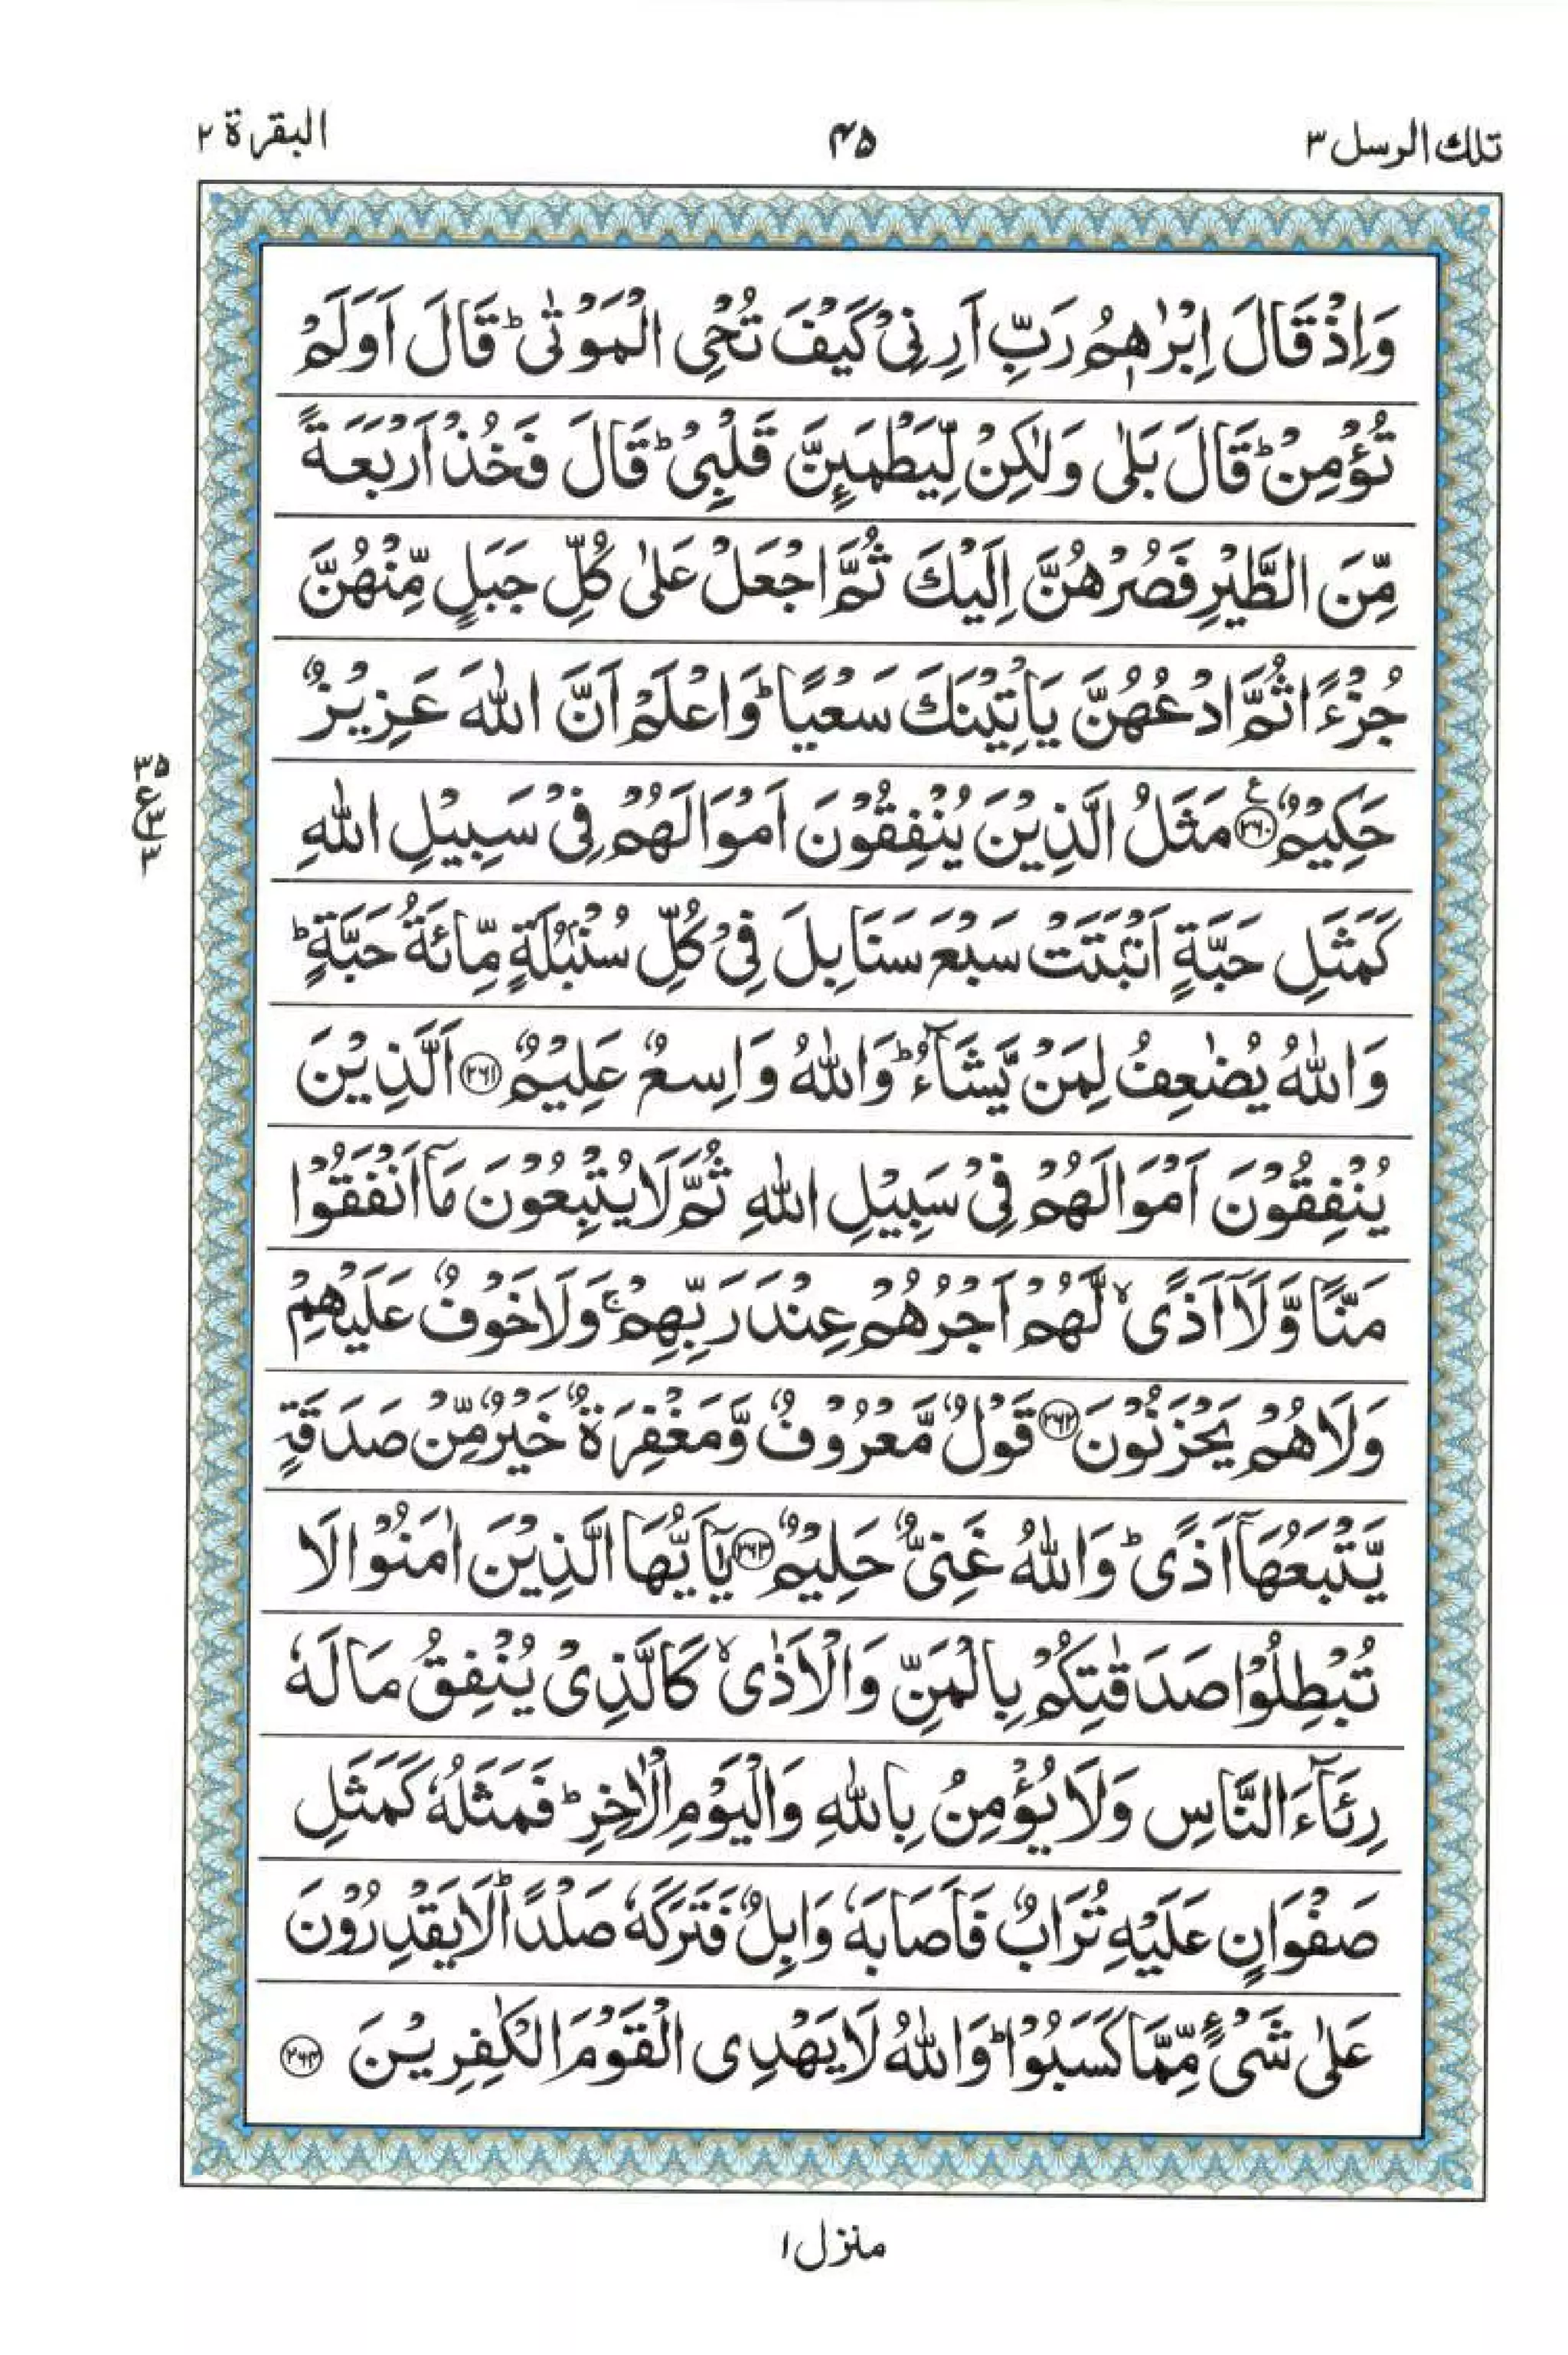 تلك الرسل ٣
٤٥
البقرة ٢
وَاِذْ قَالَ اِبْرٰهٖمُ رَبِّ اَرِنِیْ كَیْفَ تُحْیِ الْمَوْتٰیؕ قَالَ اَوَلَمْ
تُؤْمِنْؕ قَالَ بَلٰی وَلٰكِنْ لِّیَطْمَىِٕنَّ قَلْبِیْؕ قَالَ فَخُذْ اَرْبَعَةً
مِّنَ الطَّیْرِ فَصُرْهُنَّ اِلَیْكَ ثُمَّ اجْعَلْ عَلٰی كُلِّ جَبَلٍ مِّنْهُنَّ
جُزْءًا ثُمَّ ادْعُهُنَّ یَاْتِیْنَكَ سَعْیًاؕ وَاعْلَمْ اَنَّ اللّٰهَ عَزِیْزٌ
حَكِیْمٌ ﴿٢٦٠﴾ ع مَثَلُ الَّذِیْنَ یُنْفِقُوْنَ اَمْوَالَهُمْ فِیْ سَبِیْلِ اللّٰهِ
كَمَثَلِ حَبَّةٍ اَنْۢبَتَتْ سَبْعَ سَنَابِلَ فِیْ كُلِّ سُنْۢبُلَةٍ مِّائَةُ حَبَّةٍؕ
وَاللّٰهُ یُضٰعِفُ لِمَنْ یَّشَآءُؕ وَاللّٰهُ وَاسِعٌ عَلِیْمٌ ﴿٢٦١﴾ اَلَّذِیْنَ
یُنْفِقُوْنَ اَمْوَالَهُمْ فِیْ سَبِیْلِ اللّٰهِ ثُمَّ لَا یُتْبِعُوْنَ مَاۤ اَنْفَقُوْا
مَنًّا وَّلَاۤ اَذًیۙ لَّهُمْ اَجْرُهُمْ عِنْدَ رَبِّهِمْۚ وَلَا خَوْفٌ عَلَیْهِمْ
وَلَا هُمْ یَحْزَنُوْنَ ﴿٢٦٢﴾ قَوْلٌ مَّعْرُوْفٌ وَّمَغْفِرَةٌ خَیْرٌ مِّنْ صَدَقَةٍ
یَّتْبَعُهَاۤ اَذًیؕ وَاللّٰهُ غَنِیٌّ حَلِیْمٌ ﴿٢٦٣﴾ یٰۤاَیُّهَا الَّذِیْنَ اٰمَنُوْا لَا
تُبْطِلُوْا صَدَقٰتِكُمْ بِالْمَنِّ وَالْاَذٰیۙ كَالَّذِیْ یُنْفِقُ مَالَهٗ
رِئَآءَ النَّاسِ وَلَا یُؤْمِنُ بِاللّٰهِ وَالْیَوْمِ الْاٰخِرِؕ فَمَثَلُهٗ كَمَثَلِ
صَفْوَانٍ عَلَیْهِ تُرَابٌ فَاَصَابَهٗ وَابِلٌ فَتَرَكَهٗ صَلْدًاؕ لَا یَقْدِرُوْنَ
عَلٰی شَیْءٍ مِّمَّا كَسَبُوْاؕ وَاللّٰهُ لَا یَهْدِی الْقَوْمَ الْكٰفِرِیْنَ ﴿٢٦٤﴾
٣٥
ع ٣
٣
منزل ١